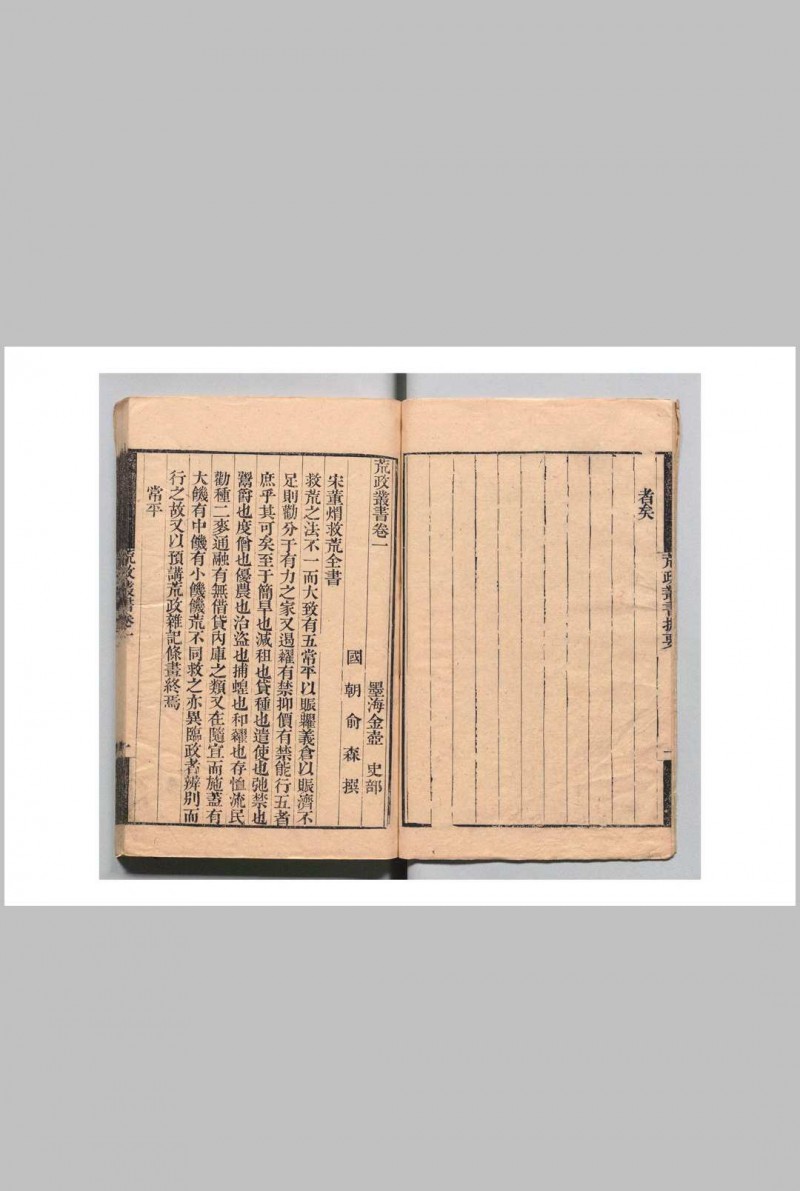 者矣
荒政叢書提要
一
荒政叢書卷一
墨海金壺 史部
國朝俞森撰
宋董煟救荒全書
救荒之法不一而大致有五常平以賑糶義倉以賑濟不
足則勸分于有力之家又遏糴有禁抑價有禁能行五者
庶乎其可矣至于簡旱也減租也貸種也遣使也弛禁也
鬻爵也度僧也優農也治盜也捕蝗也和糴也存恤流民
勸種二麥通融有無借貸內庫之類又在隨宜而施蓋有
大饑有中饑有小饑饑荒不同救之亦異臨政者辨别而
行之故又以預講荒政雜記條畫終焉
常平
荒政叢書卷一
一